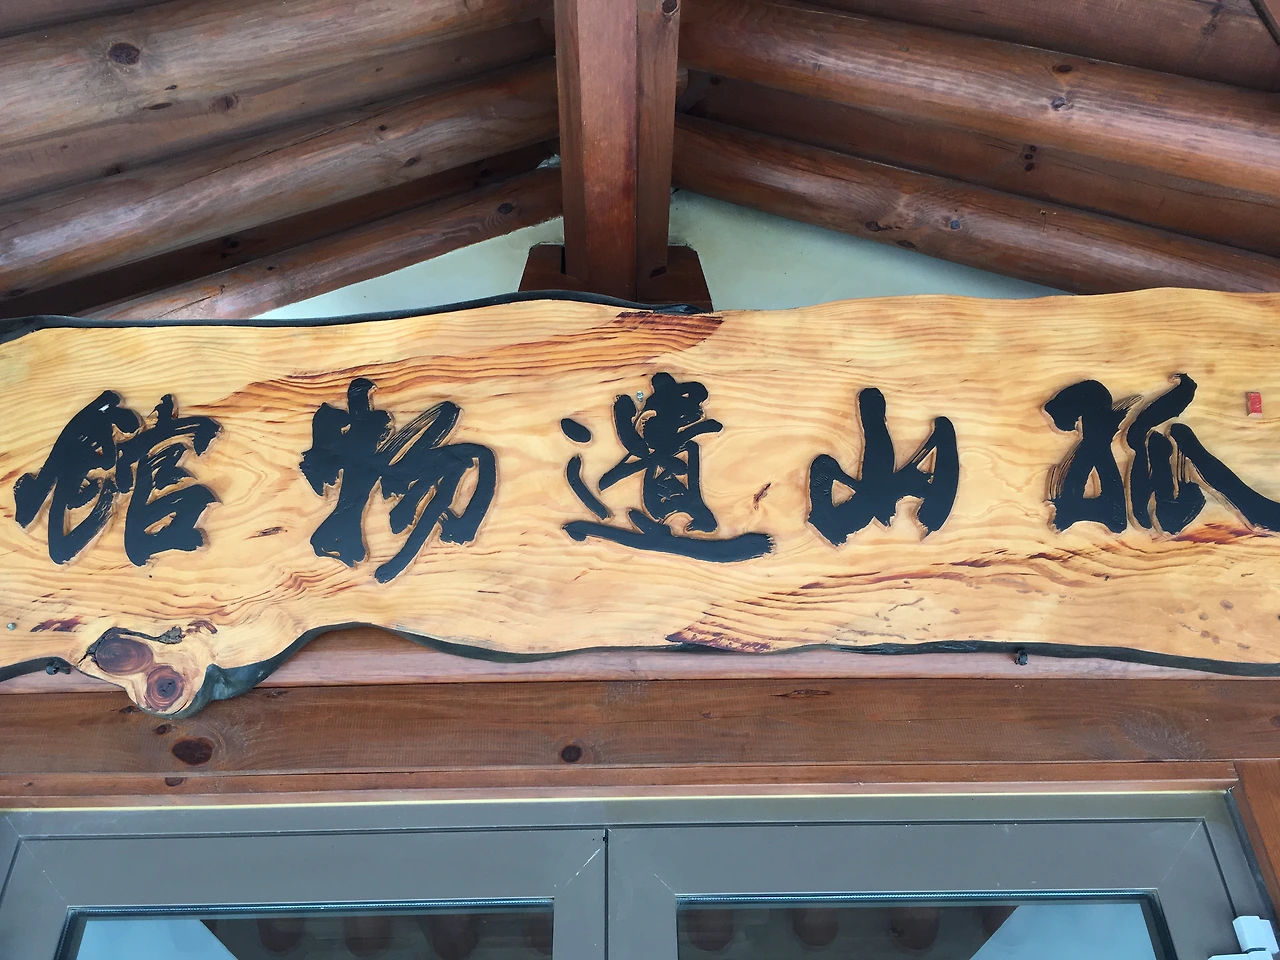 孤山遺物館